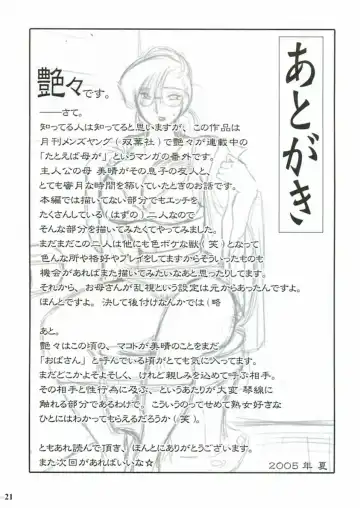 あとがき
艶々です。
――さて。
知ってる人は知ってると思いますが、この作品は
月刊メンズヤング(双葉社)で艶々が連載中の
「たとえば母が」というマンガの番外です。
主人公の母 美晴がその息子の友人と、
とても蜜月な時間を築いていたときのお話です。
本編では描いてない部分でもエッチを
たくさんしている(はずの)二人なので
そんな部分を描いてみたくてやってみました。
まだまだこの二人は他にも色ボケな獣(笑)となって
色んな所や格好やプレイをしてますからそういったものも
機会があればまた描いてみたいなあと思ったりしてます。
それから、お母さんが乱視という設定は元からあったんですよ。
ほんとですよ。決して後付けなんかでは(略
あと。
艶々はこの頃の、マコトが美晴のことをまだ
「おばさん」と呼んでいる頃がとても気に入ってます。
まだどこかよそよそしく、けれど親しみを込めて呼ぶ相手。
その相手と性行為に及ぶ、というあたりが大変 琴線に
触れる部分であるわけで、こういうのってせめて熟女好きな
ひとにはわかってもらえるだろうか(笑)。
ともあれ読んで頂き、ほんとにありがとうございます。
また次回があればいいな☆
2005年 夏
21